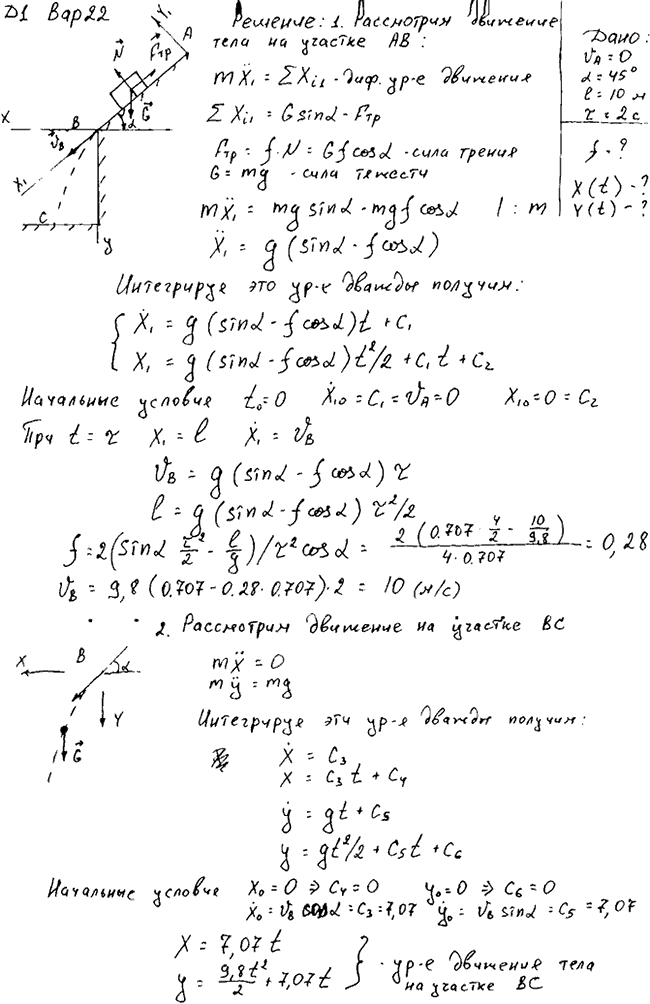 D1 Вар22
Решение: 1. Рассмотрим движение
тела на участке AB:
Дано:
v_A = 0
α = 45°
l = 10 м
τ = 2 с
f - ?
X(t) - ?
Y(t) - ?
Y₁
A
N⃗
F⃗тр
G⃗
α
X
B
v⃗_B
X₁
C
y
mẌ₁ = ΣXi1 - диф. ур-е движения
ΣXi1 = G sinα - Fтр
Fтр = f · N = G f cosα - сила трения
G = mg - сила тяжести
mẌ₁ = mg sinα - mgf cosα | : m
Ẍ₁ = g (sinα - f cosα)
Интегрируя это ур-е дважды получим:
Ẋ₁ = g (sinα - f cosα)t + C₁
X₁ = g (sinα - f cosα)t²/2 + C₁t + C₂
Начальные условия t₀=0 Ẋ₁₀ = C₁ = v_A = 0 X₁₀ = 0 = C₂
При t = τ X₁ = l Ẋ₁ = v_B
v_B = g (sinα - f cosα) τ
l = g (sinα - f cosα) τ²/2
f = 2(sinα τ²/2 - l/g)/τ² cosα = 2(0.707 · 4/2 - 10/9,8)/(4 · 0.707) = 0,28
v_B = 9,8 (0.707 - 0.28 · 0.707) · 2 = 10 (м/с)
2. Рассмотрим движение на участке BC
X
B
α
Y
G⃗
mẍ = 0
mÿ = mg
Интегрируя эти ур-е дважды получим:
ẋ = C₃
x = C₃t + C₄
ẏ = gt + C₅
y = gt²/2 + C₅t + C₆
Начальные условия X₀ = 0 ⇒ C₄ = 0 y₀ = 0 ⇒ C₆ = 0
ẋ₀ = v_B cosα = C₃ = 7,07 ẏ₀ = v_B sinα = C₅ = 7,07
X = 7,07 t
y = 9,8t²/2 + 7,07t } - ур-е движения тела
на участке BC